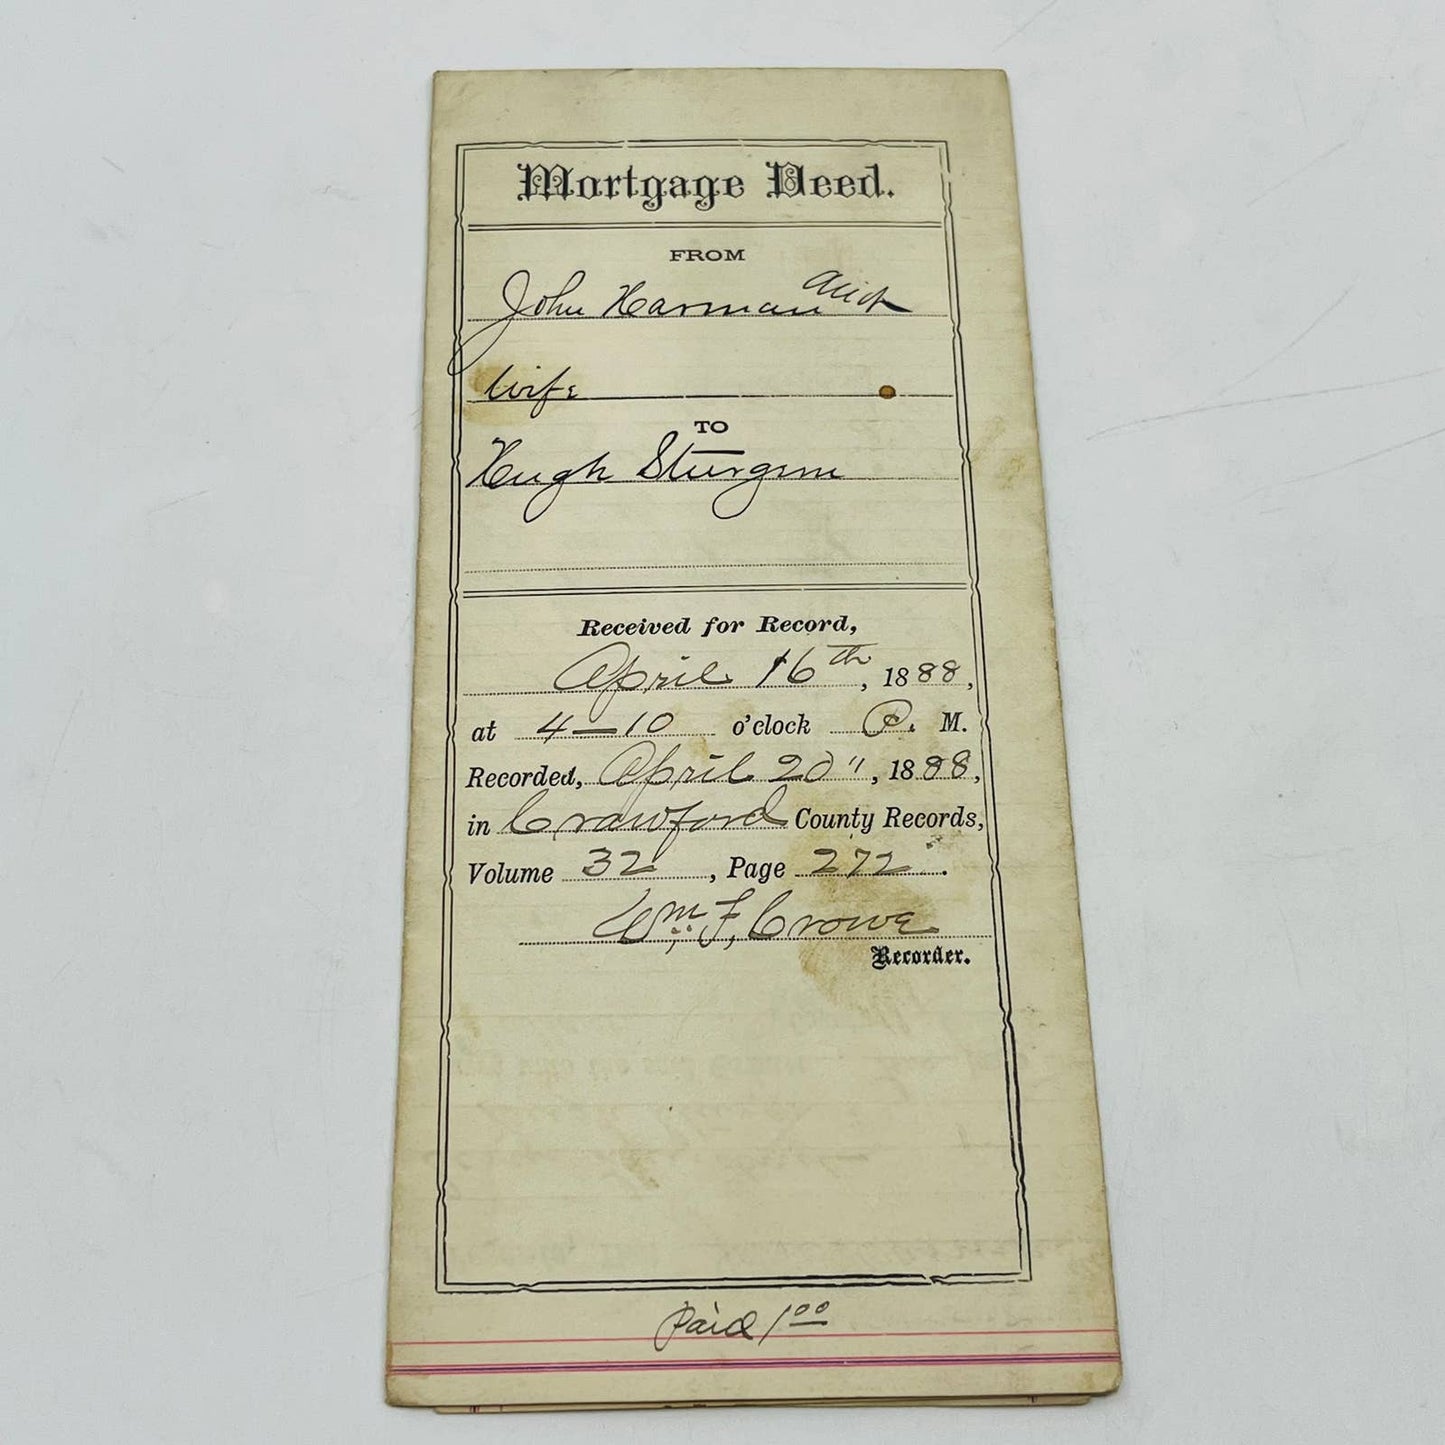 Mortgage Deed.
FROM
John Harman and
wife
TO
Hugh Sturgeon
Received for Record,
April 16th, 1888,
at 4-10 o'clock P. M.
Recorded, April 20", 1888,
in Crawford County Records,
Volume 32, Page 272.
Wm. F. Crowe
Recorder.
Paid 1 00